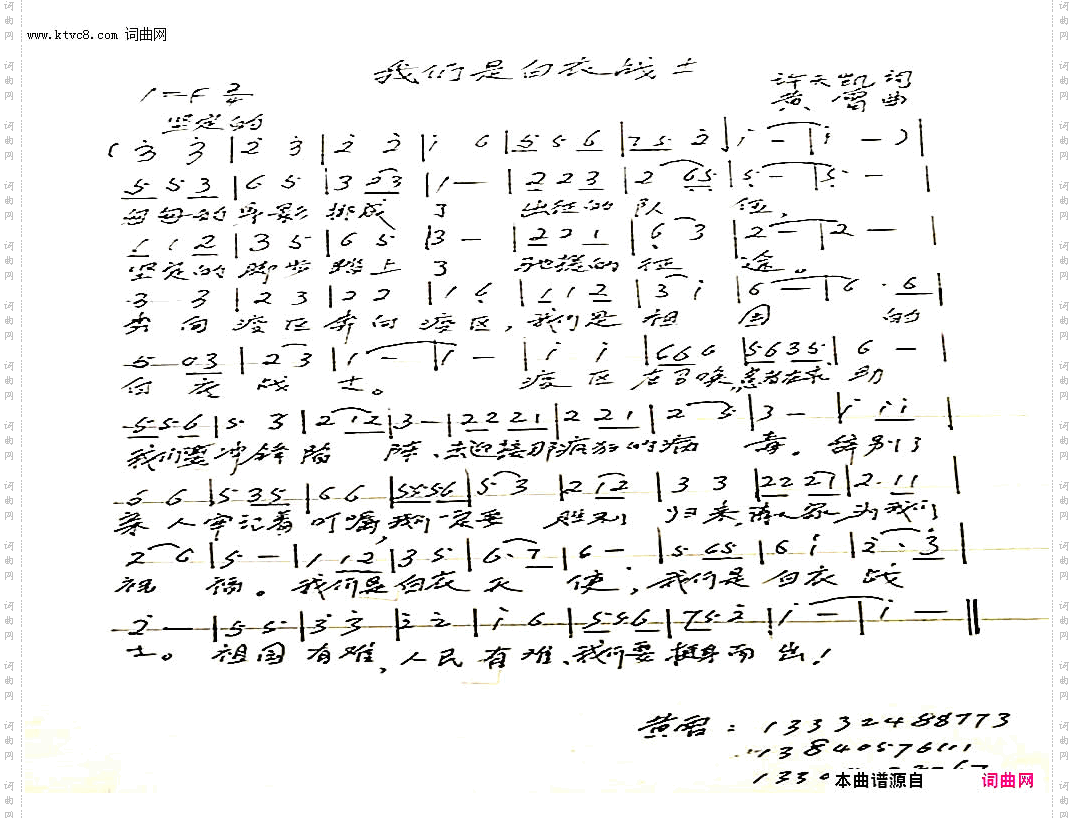 www.ktvc8.com 词曲网
我们是白衣战士
1=F 2/4
许天凯 词
黄 曲
坚定的
( 3 3 | 2 3 | 2 2 | 1 6 | 5 5 6 | 7 5 2 | 1 - | 1 - ) |
5 5 3 | 6 5 | 3 2 3 | 1 - | 2 2 3 | 2 6 5 | 5 - | 5 - |
匆匆的身影 排成 了 出征的 队 伍,
1 1 2 | 3 5 | 6 5 | 3 - | 2 2 1 | 6 3 | 2 - | 2 - |
坚定的 脚步 踏上 了 的 征 途。
3 3 | 2 3 | 2 2 | 1 6 | 1 1 2 | 3 1 | 6 - | 6 · 6 |
奔向 疫区 奔向 疫区, 我们是 祖 国 的
5 0 3 | 2 3 | 1 - | 1 - | 1 1 | 6 6 6 | 5 6 3 5 | 6 - |
白 衣 战 士。 疫区 在召唤, 患者在求 助
5 5 6 | 5 3 | 2 1 2 | 3 - | 2 2 2 1 | 2 2 1 | 2 3 | 3 - | 1 1 1 |
我们要 冲锋 陷 阵、去迎接那疯狂的病 毒。 辞别了
6 6 | 5 3 5 | 6 6 | 5 5 5 6 | 5 3 | 2 1 2 | 3 3 | 2 2 2 7 | 2 · 1 1 |
亲人 牢记着 叮嘱, 我们一定要 胜利 归来, 为我们
2 6 | 5 - | 1 1 2 | 3 5 | 6 · 7 | 6 - · | 5 6 5 | 6 1 | 2 · 3 |
祝 福。 我们是 白衣 天 使, 我们是 白衣 战
2 - | 5 5 | 3 3 | 2 2 | 1 6 | 5 5 6 | 7 5 2 | 1 - | 1 - ‖
士。 祖国 有难, 人民 有难、我们要 挺身而 出!
黄 : 13332488773
13840576111
本曲谱源自 词曲网